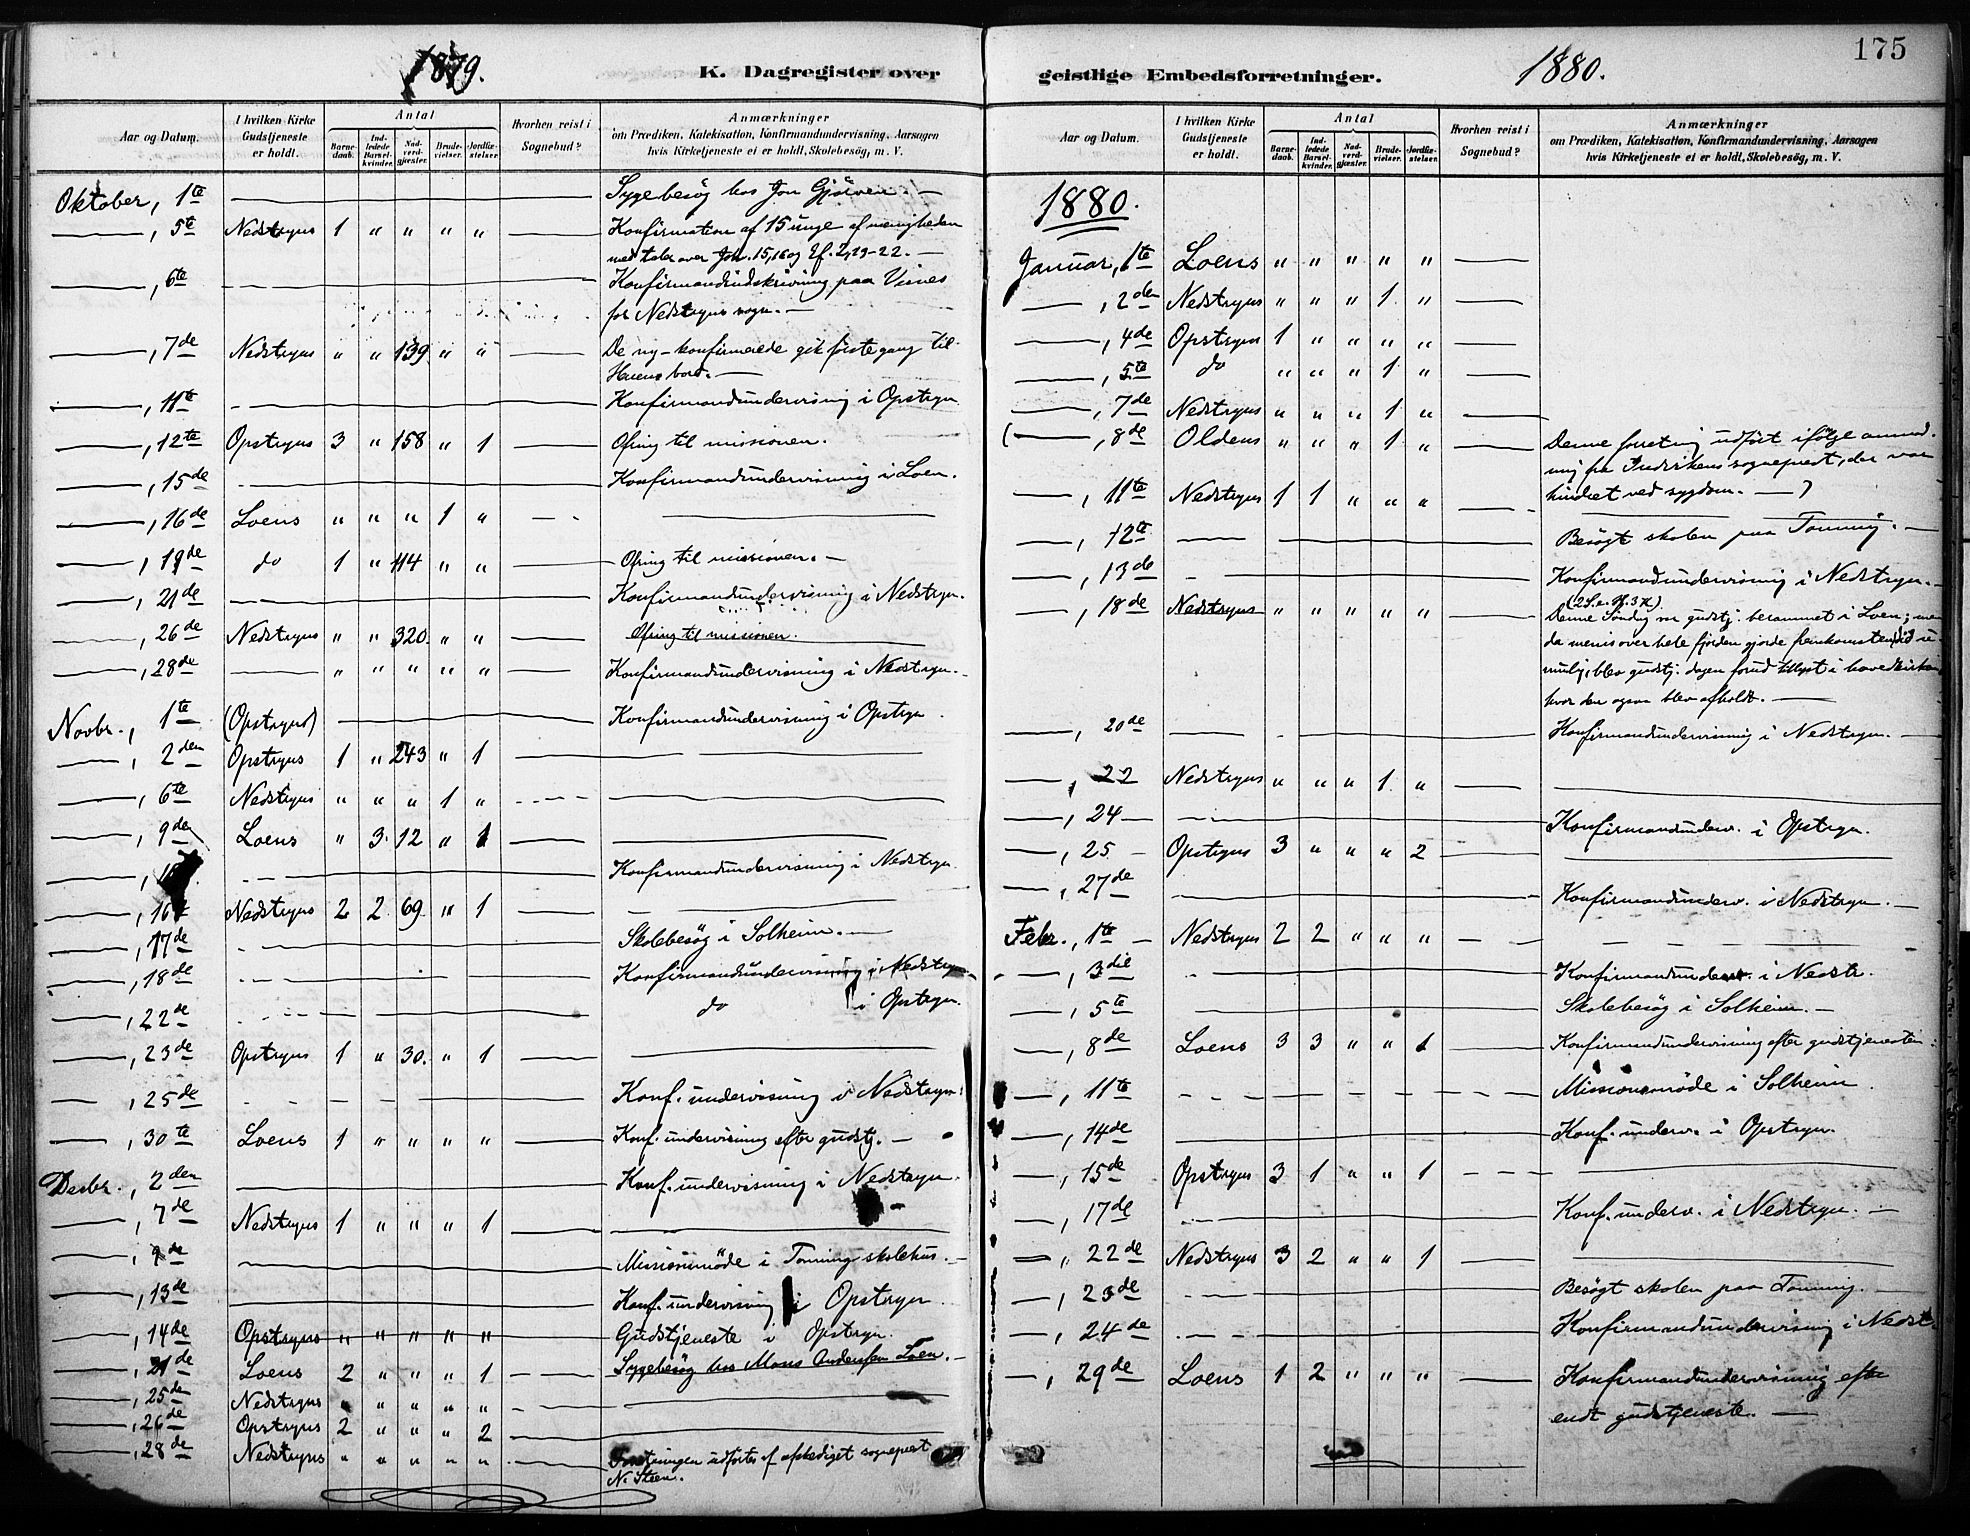 1879. K. Dagregister over
Aar og Datum. | I hvilken Kirke Gudstjeneste er holdt. | Antal | Barnedaab. | Indledede Barselkvinder. | Nadverdgjæster. | Brudevielser. | Jordfæstelser. | Hvorhen reist i Sognebud? | Anmærkninger om Prædiken, Katekisation, Konfirmandundervisning, Aarsagen hvis Kirketjeneste ei er holdt, Skolebesög, m. V.
Oktober, 1te — Sygebesög hos Jon Gjörven. —
—, 5te Nedstryns 1 " " " " — Konfirmation af 15 unge af menigheden
med taler over Joh. 15,16 og Ef. 2,19-22. —
—, 6te — Konfirmandudskrivning paa Visnes
for Nedstryns sogn. —
—, 7de Nedstryns " " 139 " " — De ny-konfirmerede gik förstegang til
Herrens bord. —
—, 11te — Konfirmandundervisning i Opstryn
—, 12te Opstryns 3 " 158 " 1 — Ofring til missionen.
—, 15de — Konfirmandundervisning i Loen.
—, 16de Loens " " " 1 " — —
—, 19de do 1 " 114 " " — Ofring til missionen. —
—, 21de — Konfirmandundervisning i Nedstryn.
—, 26de Nedstryns " " 320 " " — Ofring til missionen.
—, 28de — " " " " " — Konfirmandundervisning i Nedstryn. —
Novbr., 1te (Opstryns) — Konfirmandundervisning i Opstryn
—, 2den Opstryns 1 " 243 " 1 — —
—, 6te Nedstryns " " " 1 " — —
—, 9de Loens " 3 12 " 1 — —
—, — Konfirmandundervisning i Nedstryn
—, 16de Nedstryns 2 2 69 " 1 — —
—, 17de — Skolebesög i Solheim. —
—, 18de — Konfirmandundervisning i Nedstryn
—, 22de — do i Opstryn.
—, 23de Opstryns 1 " 30. " 1 — —
—, 25de — Konf. undervisning i Nedstryn.
—, 30te Loens 1 " " " " — Konf. undervisning efter gudstj. —
Desbr., 2den — Konf. undervisning i Nedstryn.
—, 7de Nedstryns 1 " " " 1 — —
—, 9de — Missionsmöde i Tonning skolehus. —
—, 13de — Konf. undervisning i Opstryn.
—, 14de Opstryns " " " " " Gudstjeneste i Opstryn.
—, 21de Loens 2 " " " 1 — Sygebesög hos Mons Andersen Loen. —
—, 25de Nedstryns " " " " " — —
—, 26de Opstryns 2 " " " 2 — —
—, 28de Nedstryns " " " " " — Forretningen udförtes af afskediget sognepræst
N. Steen.
geistlige Embedsforretninger. 1880. 175
Aar og Datum. | I hvilken Kirke Gudstjeneste er holdt. | Antal | Barnedaab. | Indledede Barselkvinder. | Nadverdgjæster. | Brudevielser. | Jordfæstelser. | Hvorhen reist i Sognebud? | Anmærkninger om Prædiken, Katekisation, Konfirmandundervisning, Aarsagen hvis Kirketjeneste ei er holdt, Skolebesög, m. V.
1880.
Januar, 1te Loens " " " " " —
—, 2den Nedstryns " " " 1 " —
—, 4de Opstryn 1 " " " " —
—, 5te do " " " 1 " —
—, 7de Nedstryns " " " 1 " —
(—, 8de Oldens " " " 1 " — Denne forretning udfört ifölge anmod-
ning fra Indvikens sognepræst, der var
hindret ved sygdom. —)
—, 11te Nedstryns 1 1 " " " — —
—, 12te — Besögt skolen paa Tonning. —
—, 13de — Konfirmandundervisning i Nedstryn. —
(2 S. e. H. 3 K.)
—, 18de Nedstryns " " " " " Denne Söndag var gudstj. berammet i Loen; men
da menis over hele fjorden gjorde fremkomsten did u-
mulig, blev gudstj. dagen forud tillyst i hovedkirken
hvor den ogsaa blev afholdt. —
—, 20de — Konfirmandundervisning i Nedstryn. —
—, 22 Nedstryns " " " 1 " — —
—, 24 — Konfirmandunderv. i Opstryn.
—, 25 Opstryns 3 " " " 2 — —
—, 27de — Konfirmandunderv. i Nedstryn. —
Febr., 1te Nedstryns 2 2 " " " — —
—, 3die — Konfirmandunderv. i Nedstr.
—, 5te — Skolebesög i Solheim. —
—, 8de Loens 3 3 " " 1 — Konfirmandundervisning efter gudstjenesten.
—, 11te — Missionsmöde i Solheim.
—, 14de — Konf. underv. i Opstryn.
—, 15de Opstryns 3 1 " " 1 — —
—, 17de — Konf. underv. i Nedstryn. —
—, 22de Nedstryns 3 2 " " 1 — —
—, 23de — Besögt skolen paa Tonning. —
—, 24de — Konfirmandundervisning i Nedst.
—, 29de Loens 1 2 " " " — Konfirmandundervisning efter
endt gudstjeneste. —